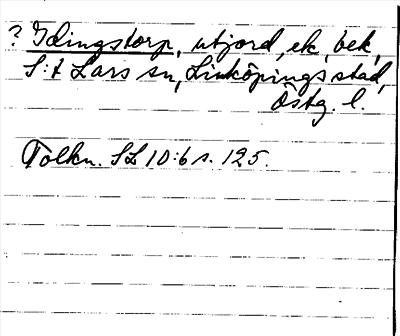 ? Idingstorp, utjord, ek, bek,
S:t Lars sn, Linköpings stad,
Östg. l.
Tolkn. SL 10:6 s. 125.